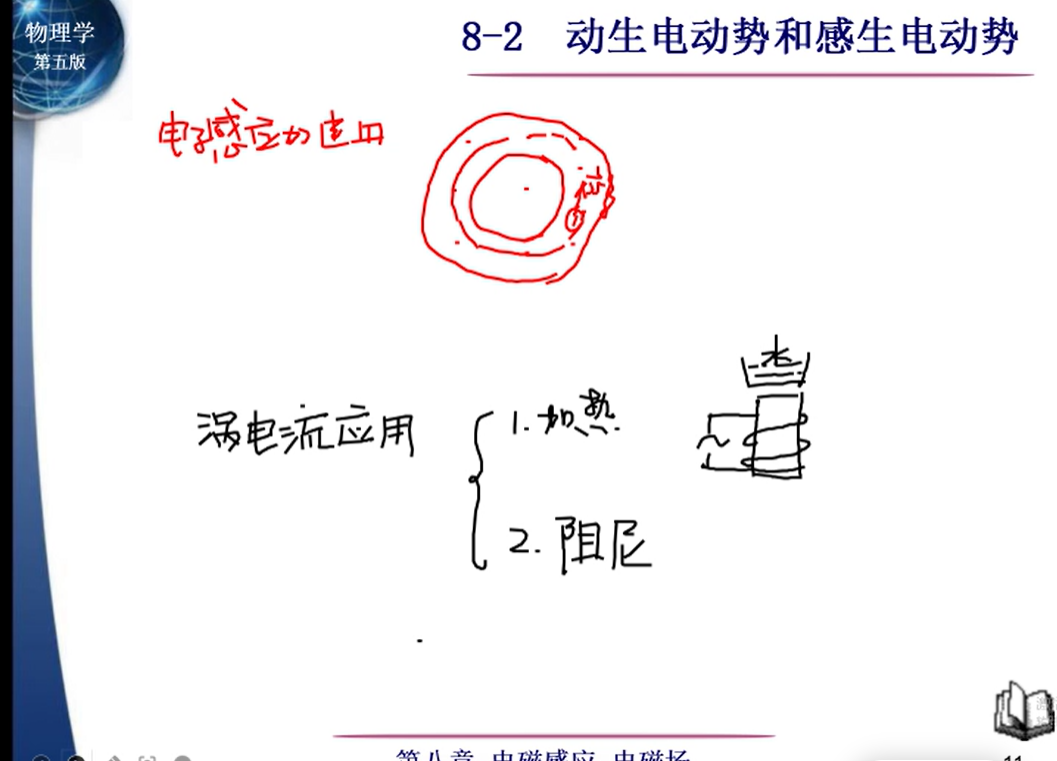 物理学
第五版
8-2 动生电动势和感生电动势
电子感应加速
水
涡电流应用
1. 加热
~
2. 阻尼
第八章 电磁感应 电磁场
11